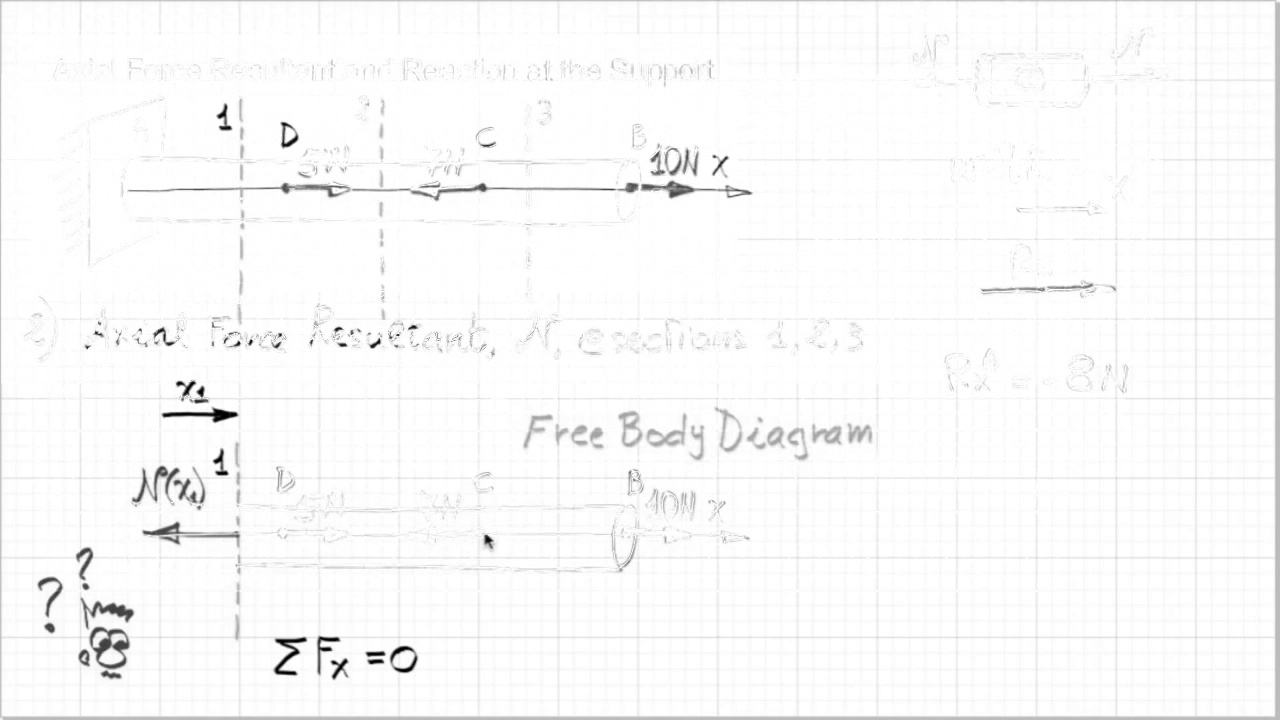 Axial Force Resultant and Reaction at the Support
N N
A 1 2 3
D 5N 7N C B 10N x
x
2) Axial Force Resultant, N, @sections 1,2,3
x1
Free Body Diagram
N(x1) 1 D 5N 7N C B 10N x
? ?
ΣFx =0